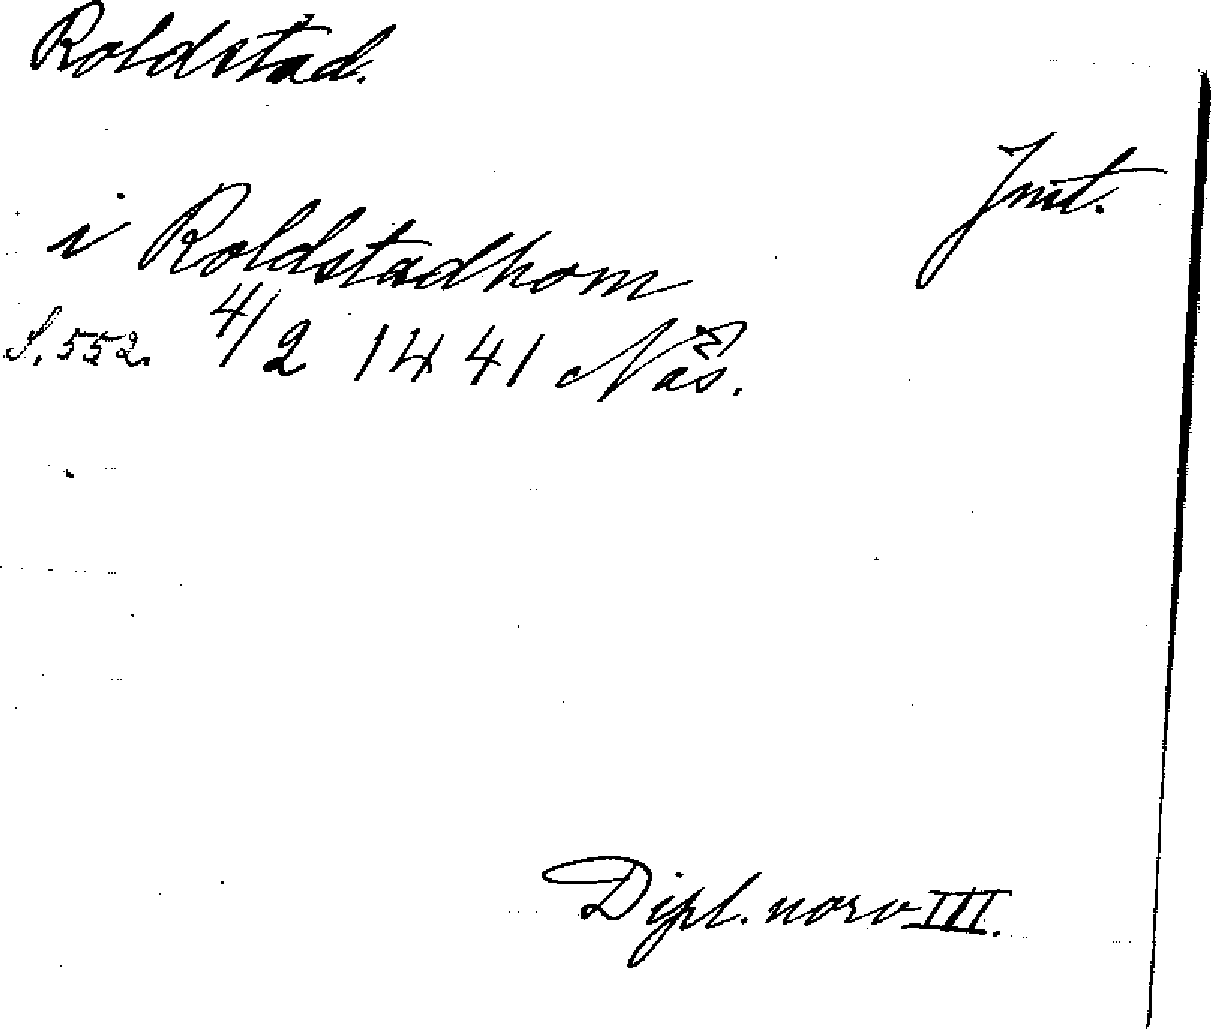 Roldstad.
Jmt.
i Roldstadhom
S. 552. 4/2 1441 Näs.
Dipl. norv III.